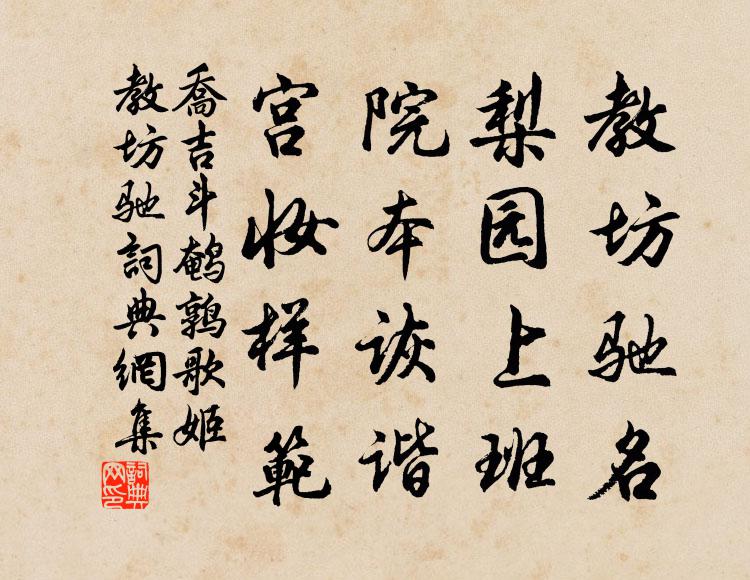 教坊驰名
梨园上班
院本诙谐
宫妆样範
喬吉斗鹌鹑歌姬
教坊驰詞典網集
詞典网印